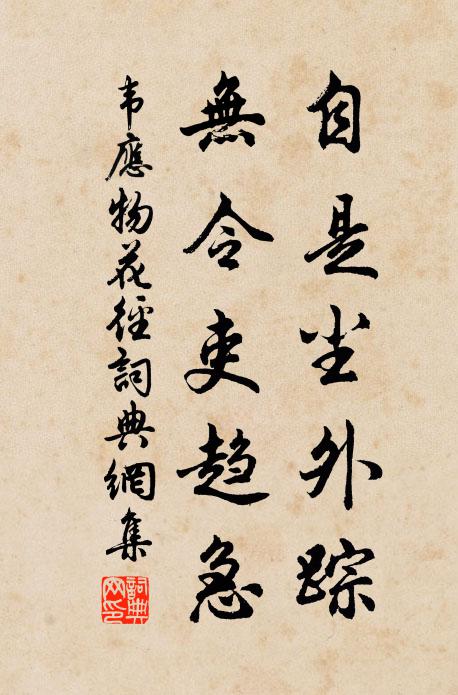 自是尘外踪
無令吏趋急
韦應物花徑詞典網集
詞典网印